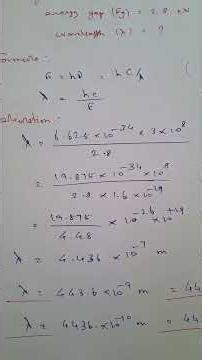 energy gap (Eg) = 2.8 eV
wavelength (λ) = ?
Formula:
E = hυ = hc/λ
λ = hc/E
Calculation:
λ = 6.625 × 10⁻³⁴ × 3 × 10⁸ / 2.8
= 19.875 × 10⁻³⁴ × 10⁸ / 2.8 × 1.6 × 10⁻¹⁹
= 19.875 / 4.48 × 10⁻²⁶ × 10⁺¹⁹
λ = 4.436 × 10⁻⁷ m
λ = 443.6 × 10⁻⁹ m = 44
λ = 4436 × 10⁻¹⁰ m = 44